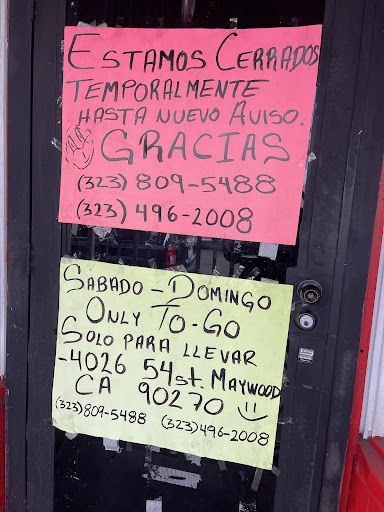 ESTAMOS CERRADOS
TEMPORALMENTE
HASTA NUEVO AVISO.
GRACIAS
(323) 809-5488
(323) 496-2008
SABADO - DOMINGO
ONLY TO-GO
SOLO PARA LLEVAR
-4026 54st. MAYWOOD
CA 90270
(323) 809-5488 (323) 496-2008